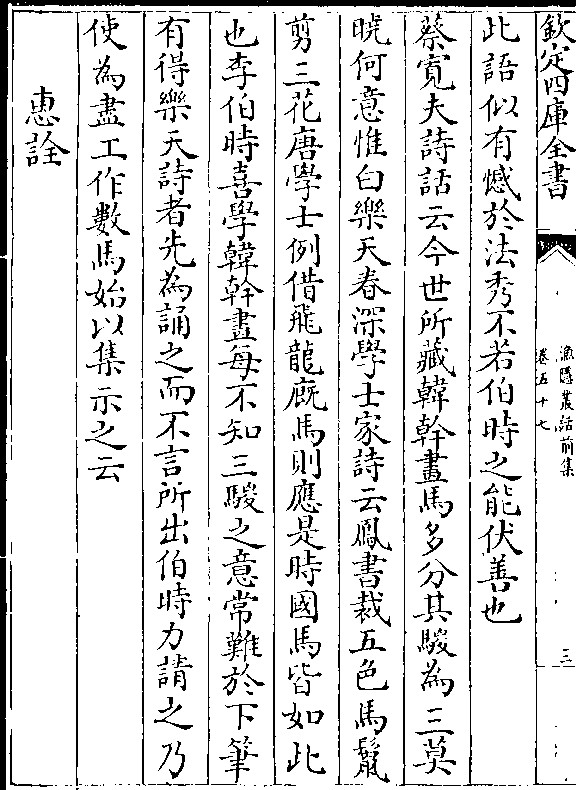 欽定四庫全書
漁隱叢話前集
卷五十七
三
此語似有憾於法秀不若伯時之能伏善也
蔡寛夫詩話云今世所藏韓幹畫馬多分其騣為三莫
曉何意惟白樂天春深學士家詩云鳳書裁五色馬鬛
剪三花唐學士例借飛龍廐馬則應是時國馬皆如此
也李伯時喜學韓幹畫每不知三騣之意常難於下筆
有得樂天詩者先為誦之而不言所出伯時力請之乃
使為盡工作數馬始以集示之云
惠詮